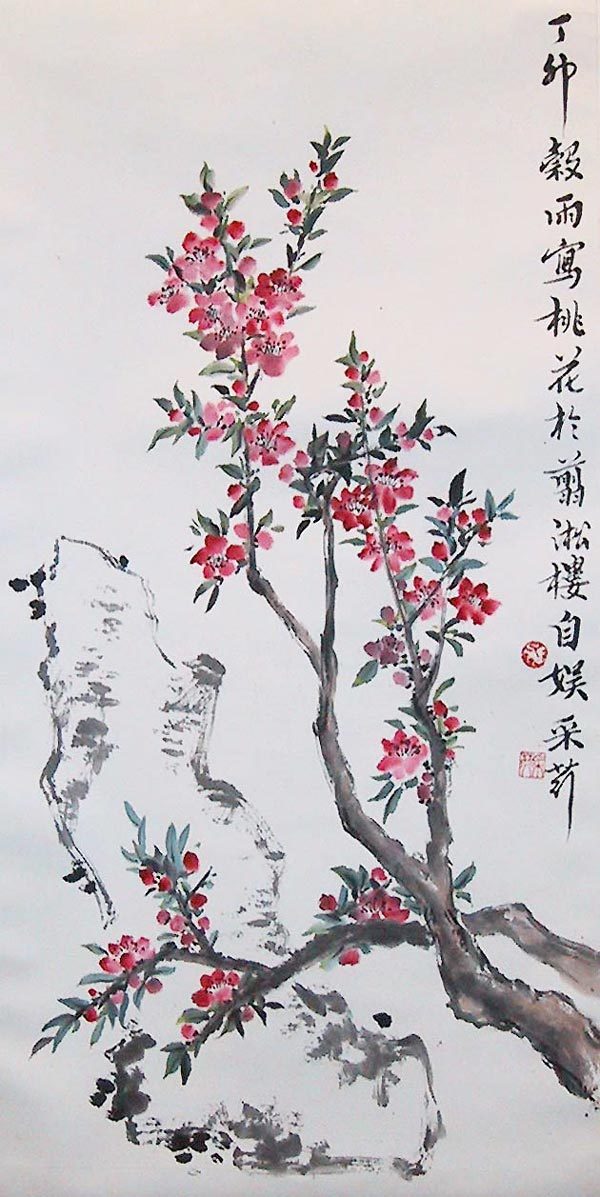 丁卯穀雨寫桃花於翦淞樓自娱采荇